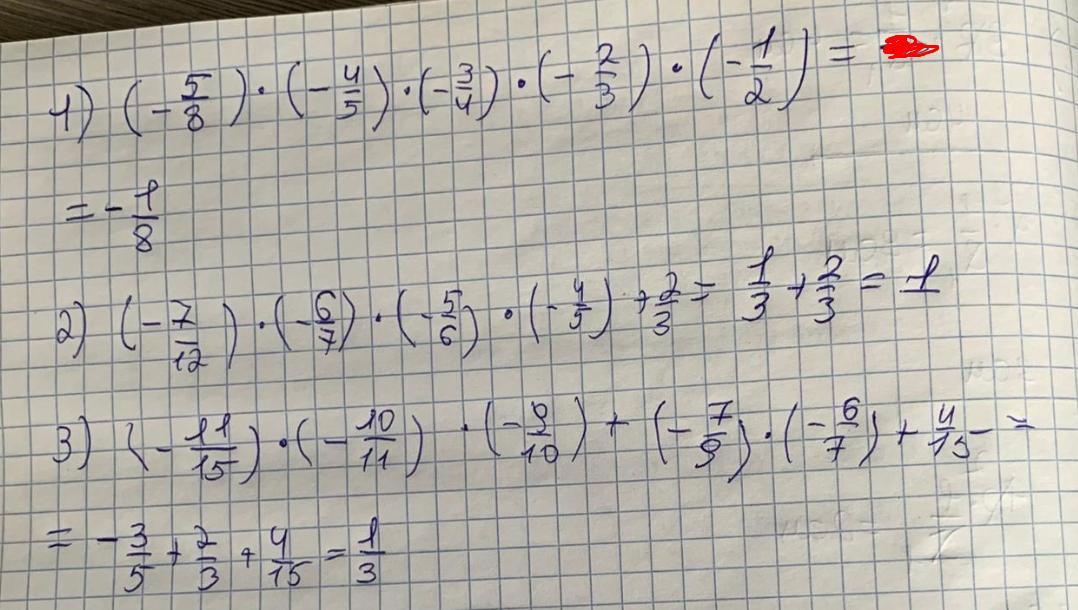 1) (-5/8)·(-4/5)·(-3/4)·(-2/3)·(-1/2)=
=-1/8
2) (-7/12)·(-6/7)·(-5/6)·(-4/5)+2/3=1/3+2/3=1
3) (-11/15)·(-10/11)·(-9/10)+(-7/9)·(-6/7)+4/15=
=-3/5+2/3+4/15=1/3